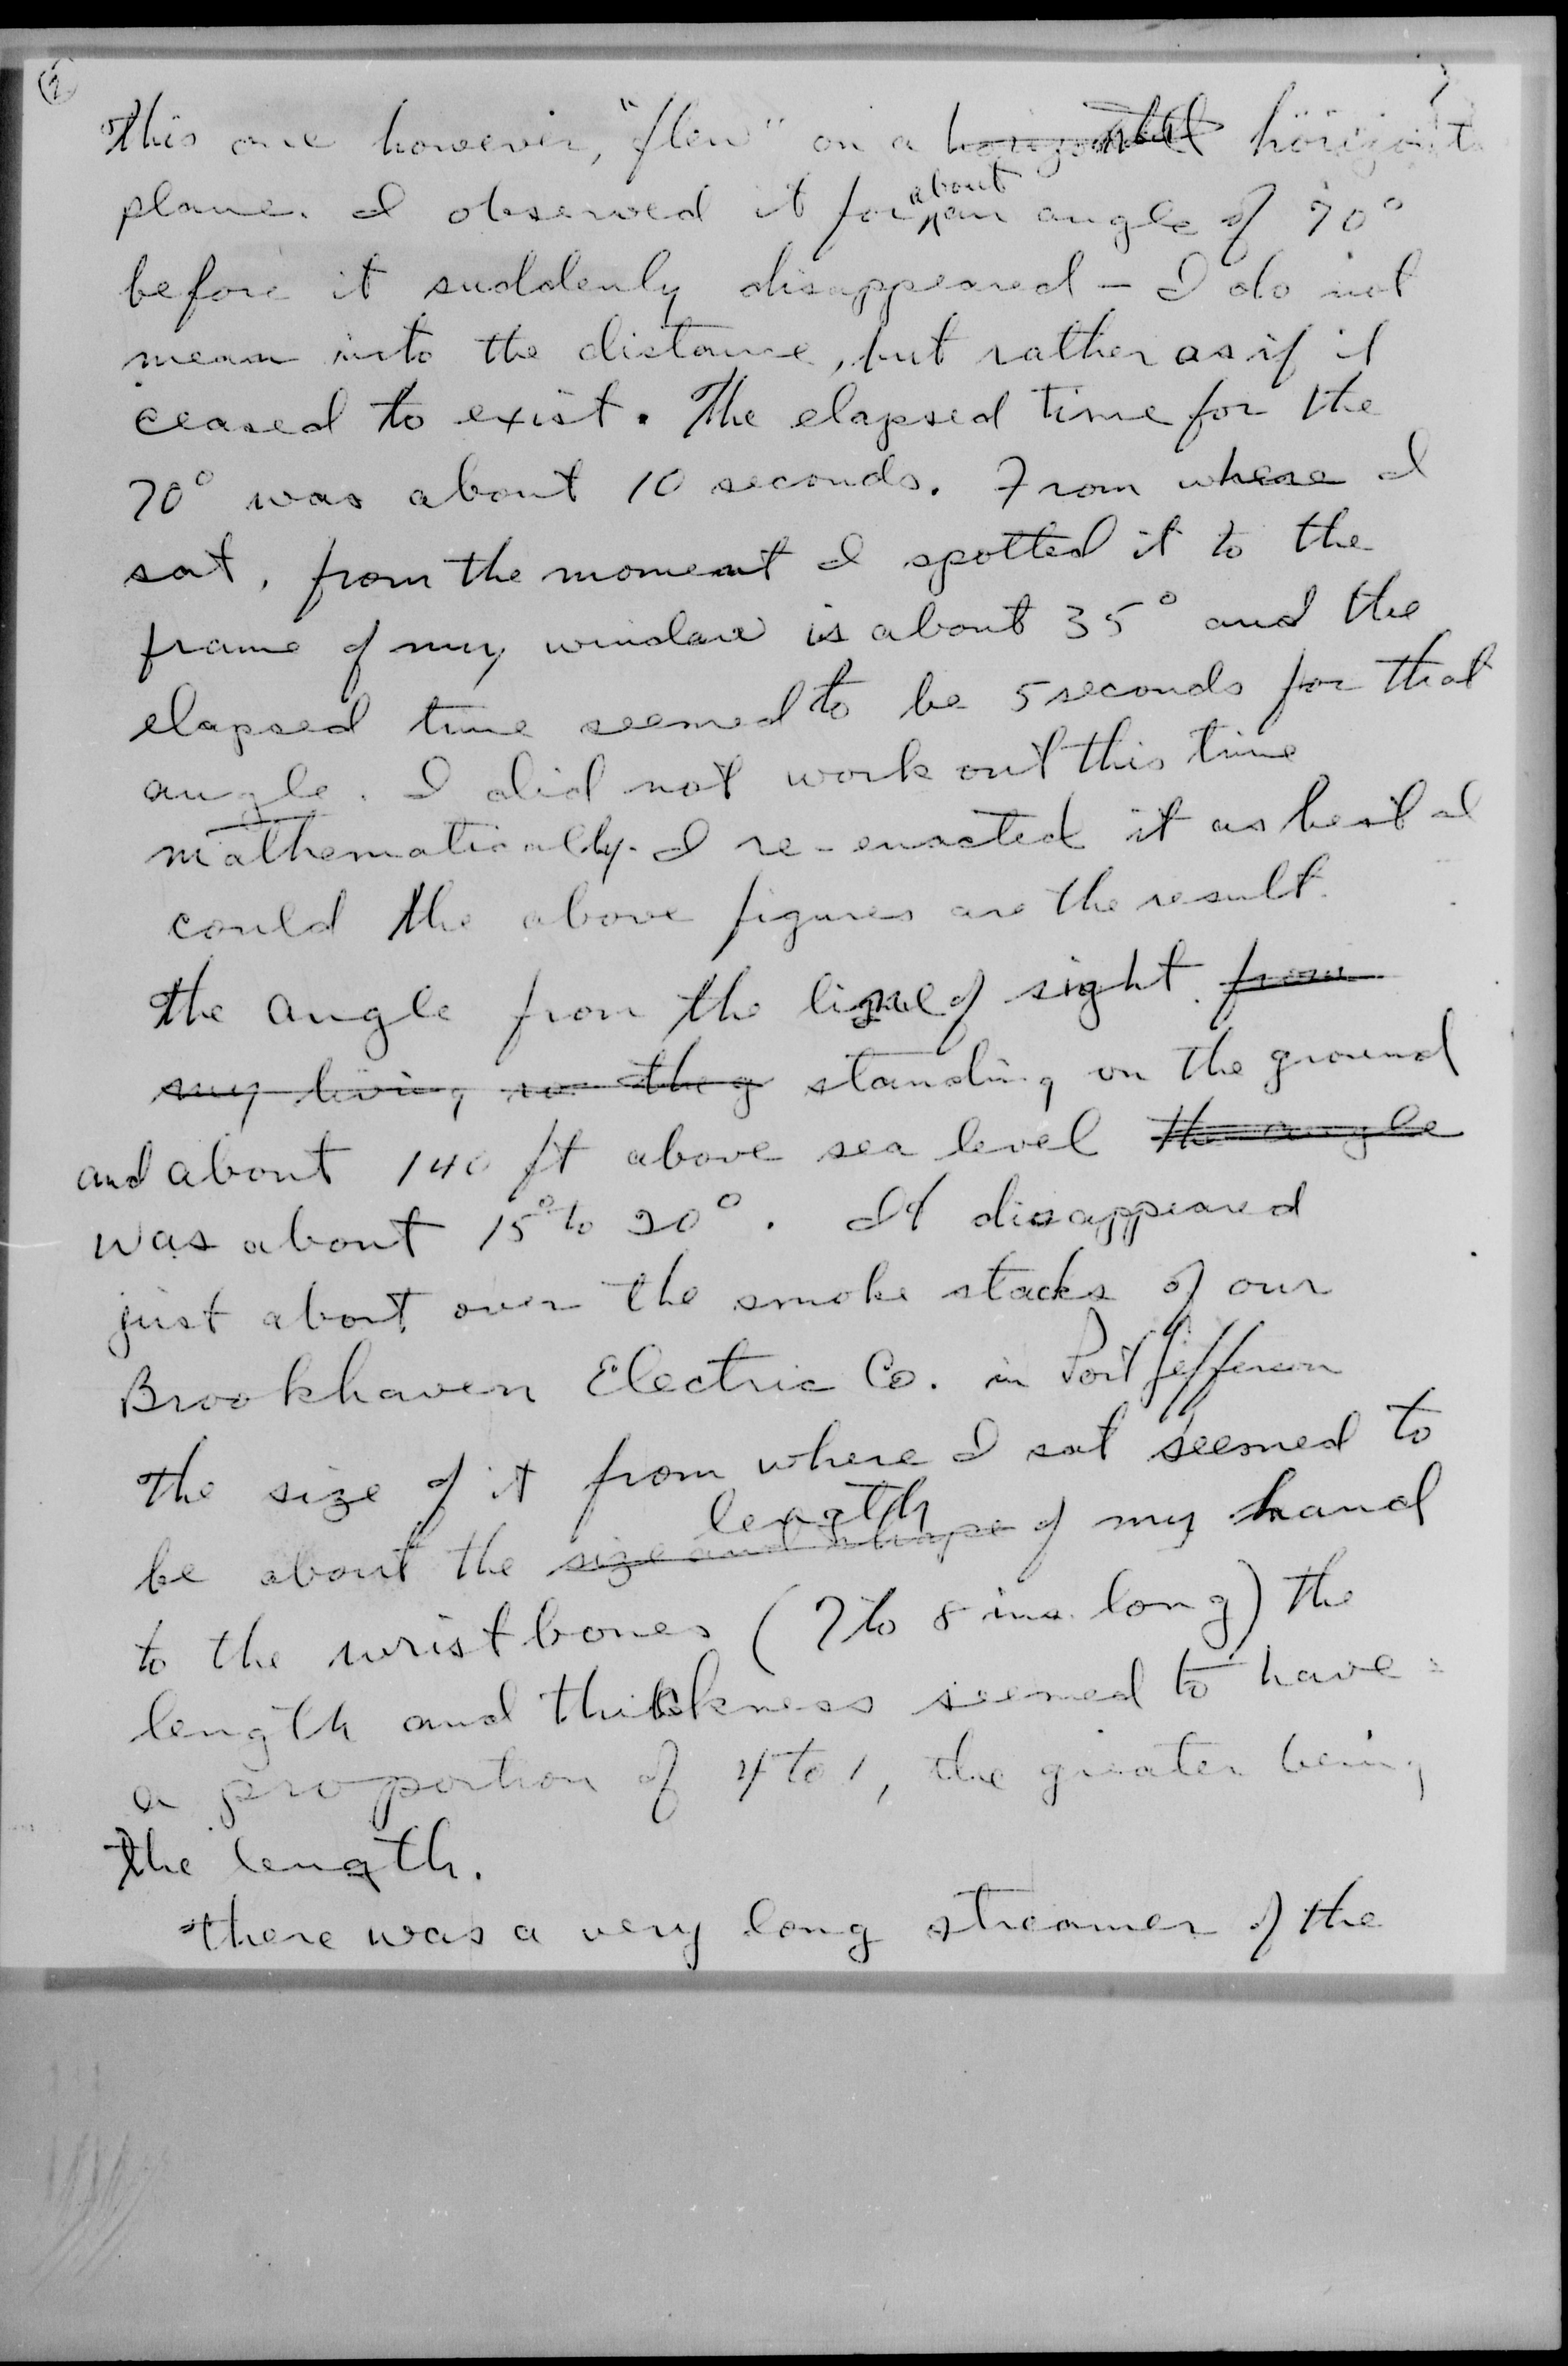 (2)
This one however, "flew" on a horizontal horizont
plane. I observed it for about an angle of 70°
before it suddenly disappeared - I do not
mean into the distance, but rather as if it
ceased to exist. The elapsed time for the
70° was about 10 seconds. From where I
sat, from the moment I spotted it to the
frame of my window is about 35° and the
elapsed time seemed to be 5 seconds for that
angle. I did not work out this time
mathematically. I re-enacted it as best I
could the above figures are the result.
The angle from the line of sight from
my living the g standing on the ground
and about 140 ft above sea level the angle
was about 15° to 20°. It disappeared
just about over the smoke stacks of our
Brookhaven Electric Co. in Port Jefferson
The size of it from where I sat seemed to
be about the size and shape length of my hand
to the wrist bones (7 to 8 ins. long) the
length and thickness seemed to have
a proportion of 4 to 1, the greater being
the length.
There was a very long streamer of the